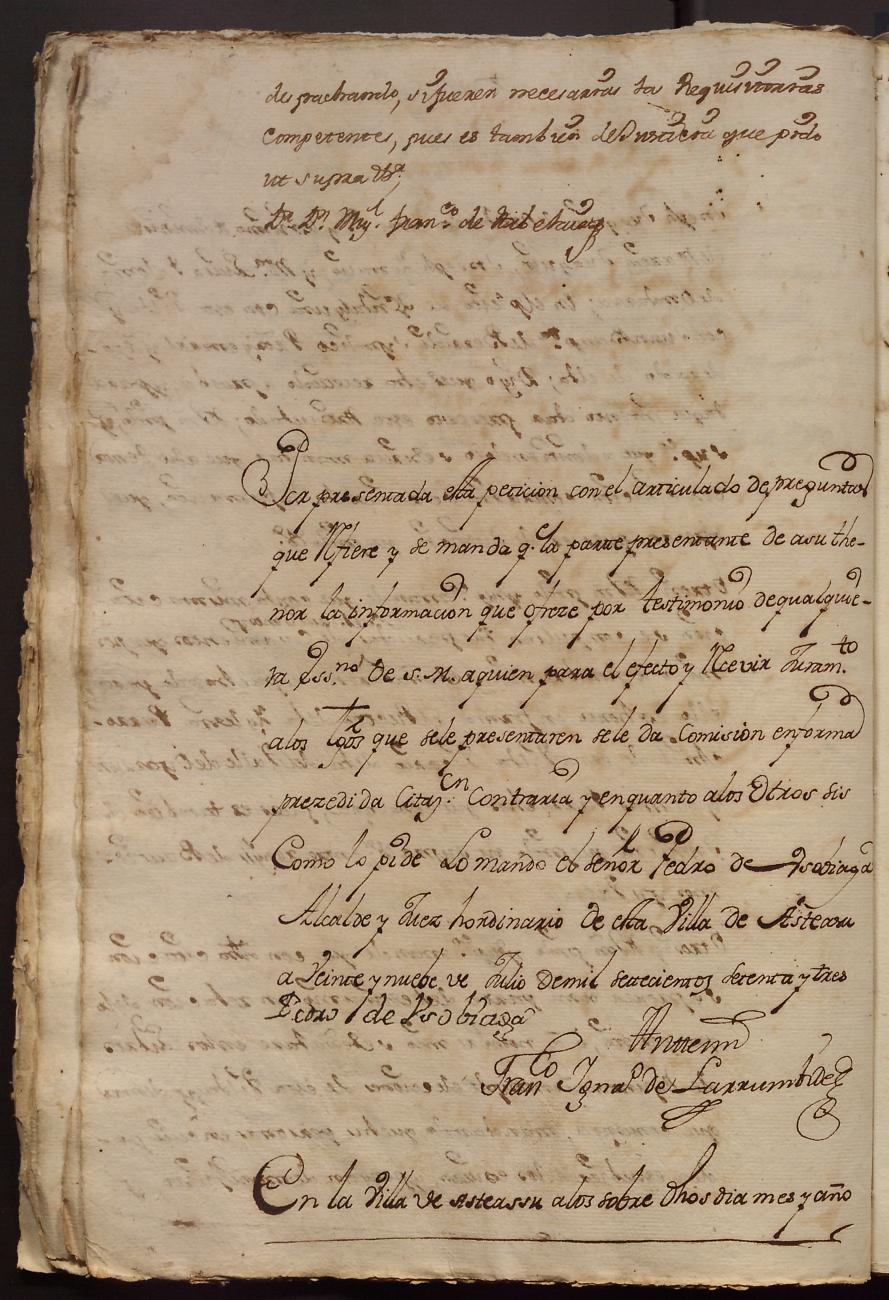 despachando, si fueren necesarias la Requisitorias
competentes, pues es tambien de Justicia que pido
ut supra &.ª
Franco. de
Por presentada esta peticion con el articulado de preguntas
que Refiere y se manda q.e la parte presentante de a su the-
nor la informacion que ofreze por testimonio de qualquie-
ra Ess.no De S. M. a quien para el efecto y Recevir Juram.to
a los Tgos que sele presentaren sele da Comision en forma
prezedida Citaz.on Contraria y en quanto a los Otros sis
Como lo pide Lo mando el señor Pedro de Ysobiaga
Alcalde y Juez hordinario de esta Villa de Asteasu
a Veinte y nuebe de Julio de mil settecientos setenta y tres
Pedro de Ysobiaga
Antte mi
Fran.co Ignaº de Larrumbide
En la Villa de Asteassu a los sobre dhos dia mes y año